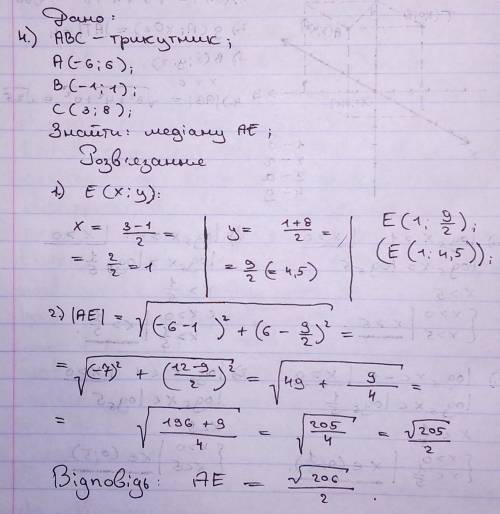 Дано:
4.) ABC – трикутник;
A(-6; 6);
B(-1; 1);
C(3; 8);
Знайти: медіану AE;
Розв'язання
1) E(x; y):
x = \frac{3-1}{2} = | y = \frac{1+8}{2} = | E(1; \frac{9}{2});
= \frac{2}{2} = 1 | = \frac{9}{2} (= 4,5) | (E(1; 4,5));
2) |AE| = \sqrt{(-6-1)^2 + (6 - \frac{9}{2})^2} =
= \sqrt{(-7)^2 + (\frac{12-9}{2})^2} = \sqrt{49 + \frac{9}{4}} =
= \sqrt{\frac{196+9}{4}} = \sqrt{\frac{205}{4}} = \frac{\sqrt{205}}{2}
Відповідь: AE = \frac{\sqrt{206}}{2}.